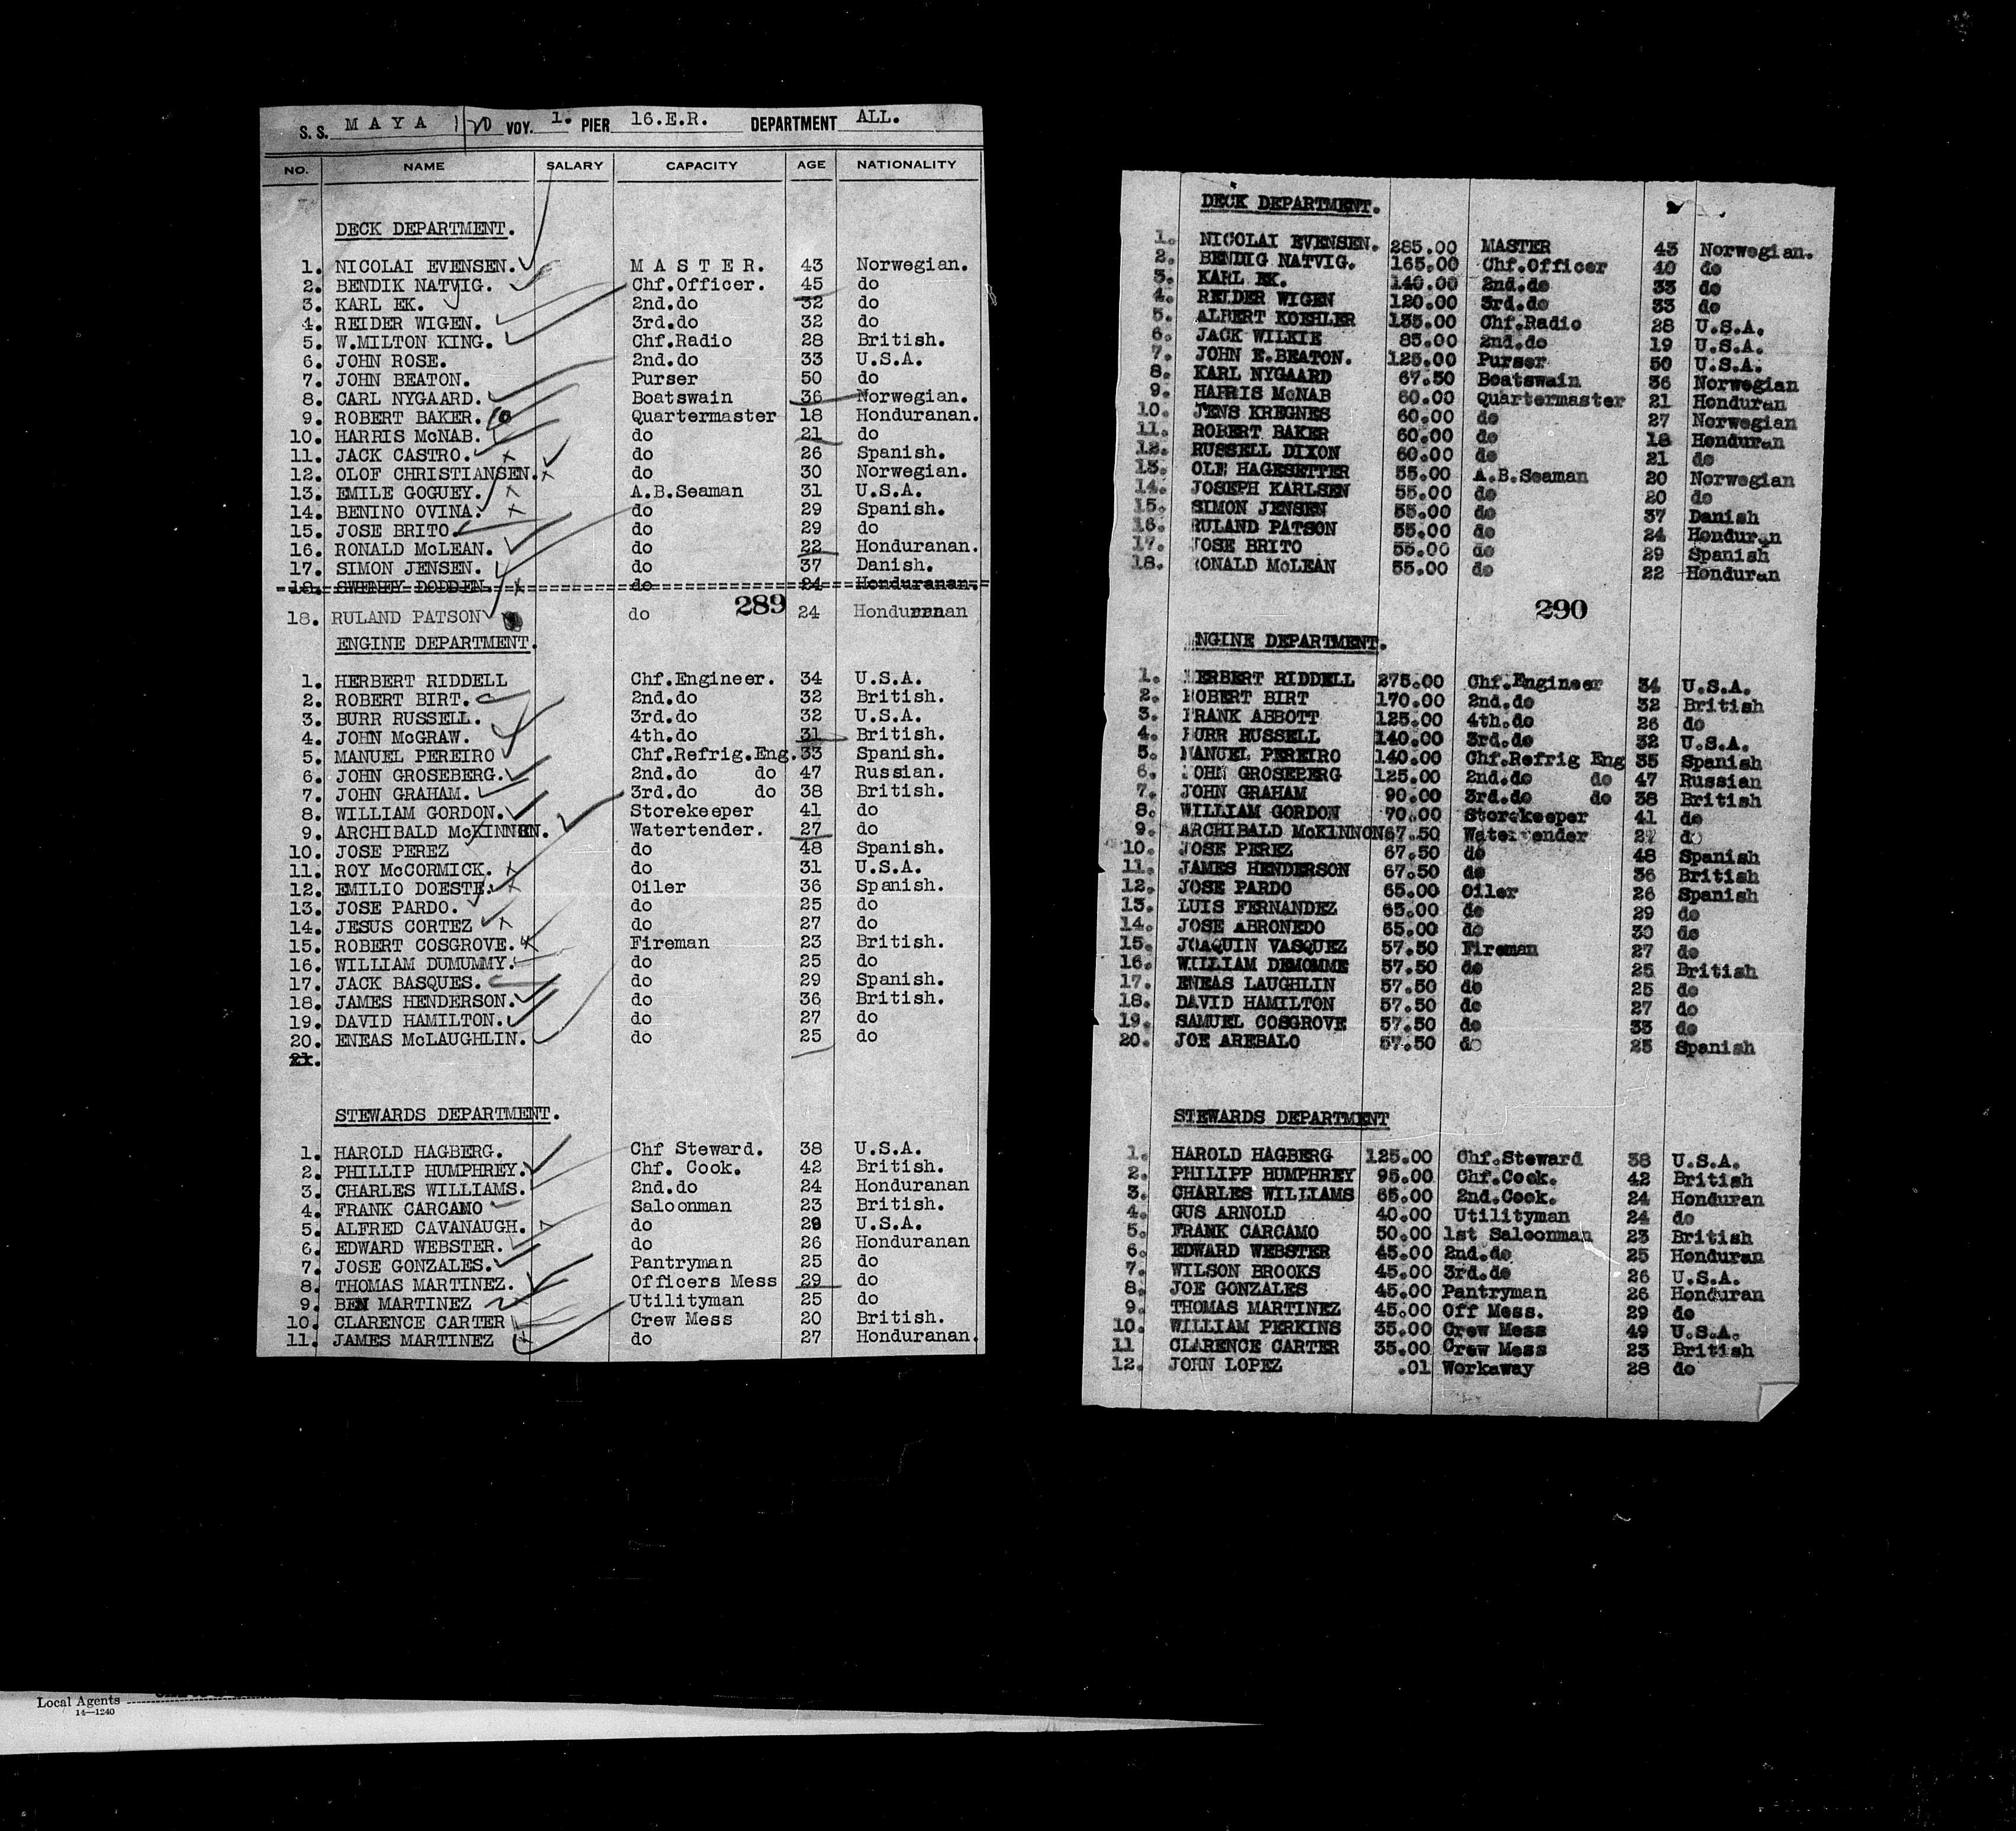 S. S. MAYA 1/20 VOY. 1. PIER 16.E.R. DEPARTMENT ALL.
NO. NAME SALARY CAPACITY AGE NATIONALITY
DECK DEPARTMENT.
1. NICOLAI EVENSEN. M A S T E R. 43 Norwegian.
2. BENDIK NATVIG. Chf.Officer. 45 do
3. KARL EK. 2nd.do 32 do
4. REIDER WIGEN. 3rd.do 32 do
5. W.MILTON KING. Chf.Radio 28 British.
6. JOHN ROSE. 2nd.do 33 U.S.A.
7. JOHN BEATON. Purser 50 do
8. CARL NYGAARD. Boatswain 36 Norwegian.
9. ROBERT BAKER. Quartermaster 18 Honduranan.
10. HARRIS McNAB. do 21 do
11. JACK CASTRO. do 26 Spanish.
12. OLOF CHRISTIANSEN. do 30 Norwegian.
13. EMILE GOGUEY. A.B.Seaman 31 U.S.A.
14. BENINO OVINA. do 29 Spanish.
15. JOSE BRITO. do 29 do
16. RONALD McLEAN. do 22 Honduranan.
17. SIMON JENSEN. do 37 Danish.
18. do 24 Honduranan.
289
18. RULAND PATSON do 24 Hondurenan
ENGINE DEPARTMENT.
1. HERBERT RIDDELL Chf.Engineer. 34 U.S.A.
2. ROBERT BIRT. 2nd.do 32 British.
3. BURR RUSSELL. 3rd.do 32 U.S.A.
4. JOHN McGRAW. 4th.do 31 British.
5. MANUEL PEREIRO Chf.Refrig.Eng. 33 Spanish.
6. JOHN GROSEBERG. 2nd.do do 47 Russian.
7. JOHN GRAHAM. 3rd.do do 38 British.
8. WILLIAM GORDON. Storekeeper 41 do
9. ARCHIBALD McKINNON. Watertender. 27 do
10. JOSE PEREZ do 48 Spanish.
11. ROY McCORMICK. do 31 U.S.A.
12. EMILIO DOESTE. Oiler 36 Spanish.
13. JOSE PARDO. do 25 do
14. JESUS CORTEZ do 27 do
15. ROBERT COSGROVE. Fireman 23 British.
16. WILLIAM DUMUMMY. do 25 do
17. JACK BASQUES. do 29 Spanish.
18. JAMES HENDERSON. do 36 British.
19. DAVID HAMILTON. do 27 do
20. ENEAS McLAUGHLIN. do 25 do
21.
STEWARDS DEPARTMENT.
1. HAROLD HAGBERG. Chf Steward. 38 U.S.A.
2. PHILLIP HUMPHREY. Chf. Cook. 42 British.
3. CHARLES WILLIAMS. 2nd.do 24 Honduranan
4. FRANK CARCAMO Saloonman 23 British.
5. ALFRED CAVANAUGH. do 29 U.S.A.
6. EDWARD WEBSTER. do 26 Honduranan
7. JOSE GONZALES. Pantryman 25 do
8. THOMAS MARTINEZ. Officers Mess 29 do
9. BEN MARTINEZ Utilityman 25 do
10. CLARENCE CARTER Crew Mess 20 British.
11. JAMES MARTINEZ do 27 Honduranan.
DECK DEPARTMENT.
1. NICOLAI EVENSEN. 285.00 MASTER 43 Norwegian.
2. BENDIG NATVIG. 165.00 Chf.Officer 40 do
3. KARL EK. 140.00 2nd.do 33 do
4. REIDER WIGEN 120.00 3rd.do 33 do
5. ALBERT KOEHLER 135.00 Chf.Radio 28 U.S.A.
6. JACK WILKIE 85.00 2nd.do 19 U.S.A.
7. JOHN E.BEATON. 125.00 Purser 50 U.S.A.
8. KARL NYGAARD 67.50 Boatswain 36 Norwegian
9. HARRIS McNAB 60.00 Quartermaster 21 Honduran
10. JENS KREGNES 60.00 do 27 Norwegian
11. ROBERT BAKER 60.00 do 18 Honduran
12. RUSSELL DIXON 60.00 do 21 do
13. OLE HAGESETTER 55.00 A.B.Seaman 20 Norwegian
14. JOSEPH KARLSEN 55.00 do 20 do
15. SIMON JENSEN 55.00 do 37 Danish
16. RULAND PATSON 55.00 do 24 Honduran
17. JOSE BRITO 55.00 do 29 Spanish
18. RONALD McLEAN 55.00 do 22 Honduran
290
ENGINE DEPARTMENT.
1. HERBERT RIDDELL 275.00 Chf.Engineer 34 U.S.A.
2. ROBERT BIRT 170.00 2nd.do 32 British
3. FRANK ABBOTT 125.00 4th.do 26 do
4. BURR RUSSELL 140.00 3rd.do 32 U.S.A.
5. MANUEL PEREIRO 140.00 Chf.Refrig Eng 35 Spanish
6. JOHN GROSEBERG 125.00 2nd.do do 47 Russian
7. JOHN GRAHAM 90.00 3rd.do do 38 British
8. WILLIAM GORDON 70.00 Storekeeper 41 do
9. ARCHIBALD McKINNON 67.50 Watertender 27 do
10. JOSE PEREZ 67.50 do 48 Spanish
11. JAMES HENDERSON 67.50 do 36 British
12. JOSE PARDO 65.00 Oiler 26 Spanish
13. LUIS FERNANDEZ 65.00 do 29 do
14. JOSE ABRONEDO 65.00 do 30 do
15. JOAQUIN VASQUEZ 57.50 Fireman 27 do
16. WILLIAM DEMOMME 57.50 do 25 British
17. ENEAS LAUGHLIN 57.50 do 25 do
18. DAVID HAMILTON 57.50 do 27 do
19. SAMUEL COSGROVE 57.50 do 33 do
20. JOE AREBALO 57.50 do 25 Spanish
STEWARDS DEPARTMENT
1. HAROLD HAGBERG 125.00 Chf.Steward 38 U.S.A.
2. PHILIPP HUMPHREY 95.00 Chf.Cook. 42 British
3. CHARLES WILLIAMS 65.00 2nd.Cook. 24 Honduran
4. GUS ARNOLD 40.00 Utilityman 24 do
5. FRANK CARCAMO 50.00 1st Saloonman 23 British
6. EDWARD WEBSTER 45.00 2nd.do 25 Honduran
7. WILSON BROOKS 45.00 3rd.do 26 U.S.A.
8. JOE GONZALES 45.00 Pantryman 26 Honduran
9. THOMAS MARTINEZ 45.00 Off Mess. 29 do
10. WILLIAM PERKINS 35.00 Crew Mess 49 U.S.A.
11 CLARENCE CARTER 35.00 Crew Mess 23 British
12. JOHN LOPEZ .01 Workaway 28 do
Local Agents
14—1240